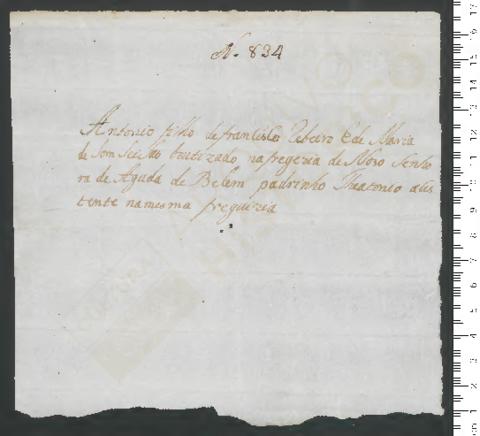 N. 834
Antonio filho de francisco Ribeiro E de Maria
de bautizado na fregezia de Noso Senho
ra de Ajuda de Belem padrinho Theatonio asis
tente namesma freguizia